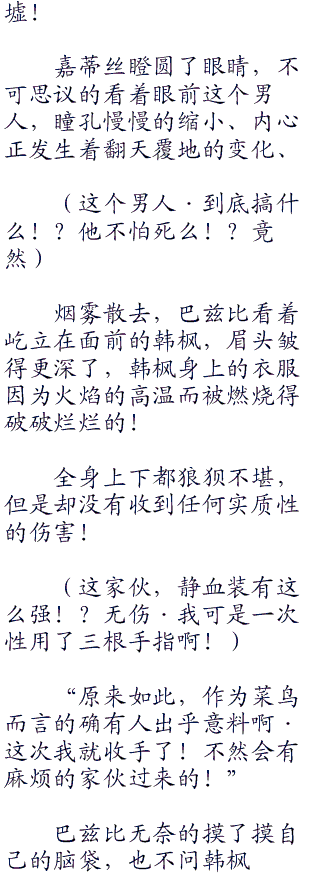 墟！
嘉蒂丝瞪圆了眼睛，不
可思议的看着眼前这个男
人，瞳孔慢慢的缩小、内心
正发生着翻天覆地的变化、
（这个男人·到底搞什
么！？他不怕死么！？竟
然）
烟雾散去，巴兹比看着
屹立在面前的韩枫，眉头皱
得更深了，韩枫身上的衣服
因为火焰的高温而被燃烧得
破破烂烂的！
全身上下都狼狈不堪，
但是却没有收到任何实质性
的伤害！
（这家伙，静血装有这
么强！？无伤·我可是一次
性用了三根手指啊！）
“原来如此，作为菜鸟
而言的确有人出乎意料啊·
这次我就收手了！不然会有
麻烦的家伙过来的！”
巴兹比无奈的摸了摸自
己的脑袋，也不问韩枫